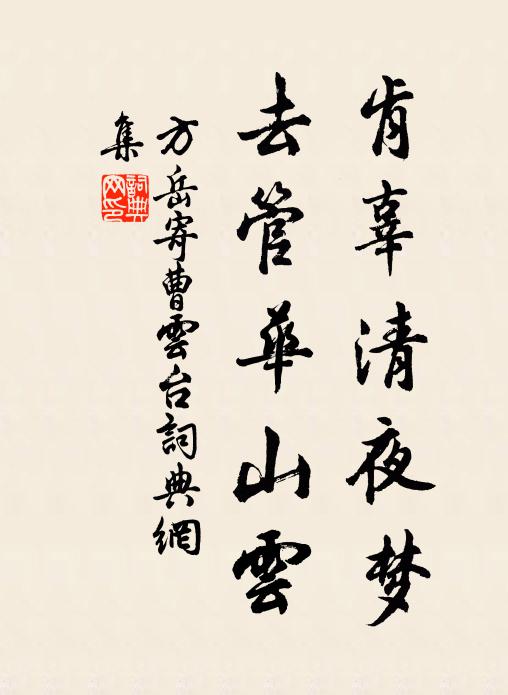 肯辜清夜梦
去管華山雲
方岳寄曹雲台詞典網
集
詞典網印